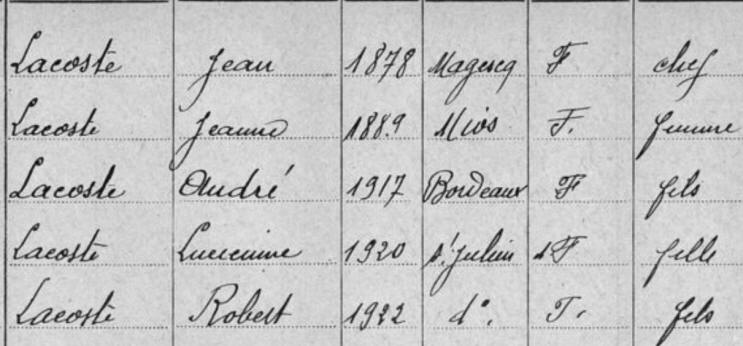 Lacoste Jean 1878 Magescq F chef
Lacoste Jeanne 1889 Mios F. femme
Lacoste André 1917 Bordeaux F fils
Lacoste Lucienne 1920 St Julien F fille
Lacoste Robert 1922 d°. F. fils